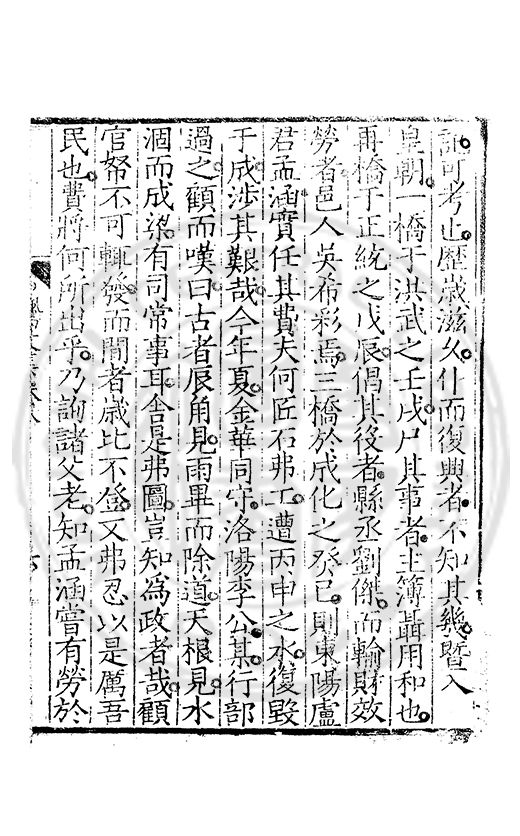 記可考也歷歲滋久仆而復興者不知其幾暨入
皇朝一橋于洪武之壬戌尸其事者主簿聶用和也
再橋于正統之戊辰倡其役者縣丞劉傑而輸財效
勞者邑人吳希彩焉三橋於成化之癸巳則東陽盧
君孟涵實任其費夫何匠石弗工遭丙申之水復毀
于成涉其艱哉今年夏金華同守洛陽李公某行部
過之顧而嘆曰古者辰角見雨畢而除道天根見水
涸而成梁有司常事耳舍是弗圖豈知為政者哉顧
官帑不可輒發而閭者歲比不登又弗忍以是厲吾
民也費將何所出乎乃詢諸父老知孟涵嘗有勞於